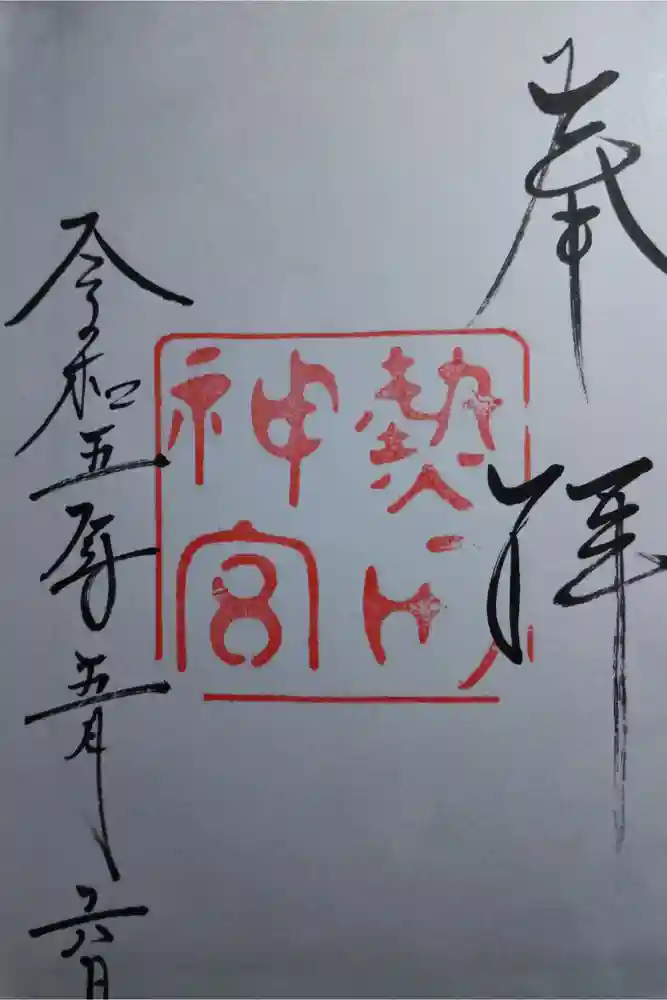 奉拝
熱田
神宮
令和五年五月六日